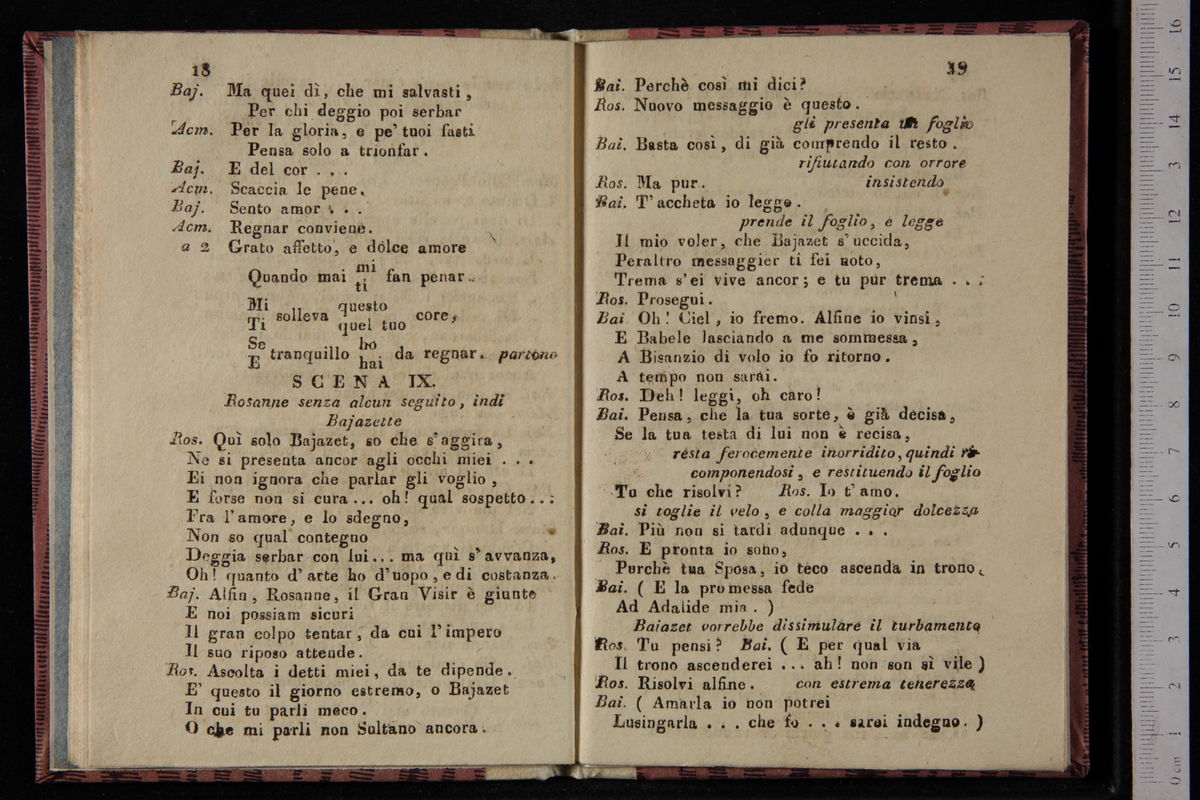 18
Baj. Ma quei dì, che mi salvasti,
Per chi deggio poi serbar
Acm. Per la gloria, e pe' tuoi fasti
Pensa solo a trionfar.
Baj. E del cor . . .
Acm. Scaccia le pene.
Baj. Sento amor . . .
Acm. Regnar conviene.
a 2 Grato affetto, e dolce amore
Quando mai mi fan penar.
ti
Mi solleva questo core,
Ti quel tuo
Se tranquillo ho da regnar. partono
E hai
SCENA IX.
Rosanne senza alcun seguito, indi
Bajazette
Ros. Quì solo Bajazet, so che s'aggira,
Ne si presenta ancor agli occhi miei . . .
Ei non ignora che parlar gli voglio,
E forse non si cura... oh! qual sospetto...
Fra l'amore, e lo sdegno,
Non so qual contegno
Deggia serbar con lui... ma quì s'avvanza,
Oh! quanto d'arte ho d'uopo, e di costanza.
Baj. Alfin, Rosanne, il Gran Visir è giunto
E noi possiam sicuri
Il gran colpo tentar, da cui l'impero
Il suo riposo attende.
Ros. Ascolta i detti miei, da te dipende.
E' questo il giorno estremo, o Bajazet
In cui tu parli meco.
O che mi parli non Sultano ancora.
19
Bai. Perchè così mi dici?
Ros. Nuovo messaggio è questo.
gli presenta un foglio
Bai. Basta così, di già comprendo il resto.
rifiutando con orrore
Ros. Ma pur. insistendo
Bai. T'accheta io leggo.
prende il foglio, e legge
Il mio voler, che Bajazet s'uccida,
Peraltro messaggier ti fei noto,
Trema s'ei vive ancor; e tu pur trema . . .
Ros. Prosegui.
Bai Oh! Ciel, io fremo. Alfine io vinsi,
E Babele lasciando a me sommessa,
A Bisanzio di volo io fo ritorno.
A tempo non sarai.
Ros. Deh! leggi, oh caro!
Bai. Pensa, che la tua sorte, è già decisa,
Se la tua testa di lui non è recisa,
resta ferocemente inorridito, quindi ri-
componendosi, e restituendo il foglio
Tu che risolvi? Ros. Io t'amo.
si toglie il velo, e colla maggior dolcezza
Bai. Più non si tardi adunque . . .
Ros. E pronta io sono,
Purchè tua Sposa, io teco ascenda in trono.
Bai. ( E la promessa fede
Ad Adalide mia . )
Baiazet vorrebbe dissimulare il turbamento
Ros. Tu pensi? Bai. ( E per qual via
Il trono ascenderei ... ah! non son sì vile )
Ros. Risolvi alfine. con estrema tenerezza
Bai. ( Amarla io non potrei
Lusingarla . . . che fo . . . sarei indegno. )